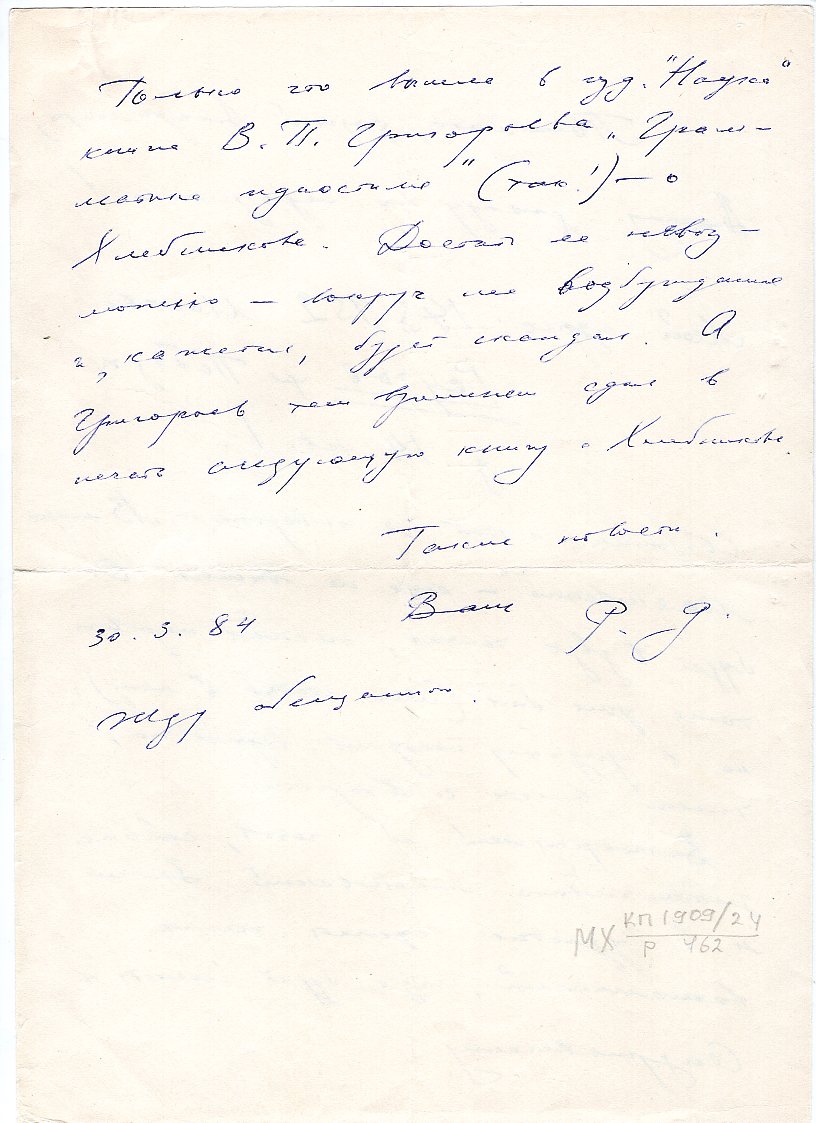 Только что вышла в изд. "Наука"
книга В. П. Григорьева „Грам-
матика идиостиля" (так!) — о
Хлебникове. Достать ее невоз-
можно — вокруг нее возбуждение
и, кажется, будет скандал. А
Григорьев тем временем сдал в
печать следующую книгу о Хлебникове.
Такие новости.
Ваш Р. Д.
30. 3. 84
Жду обещанного.
МХ КП1909/24
р 462